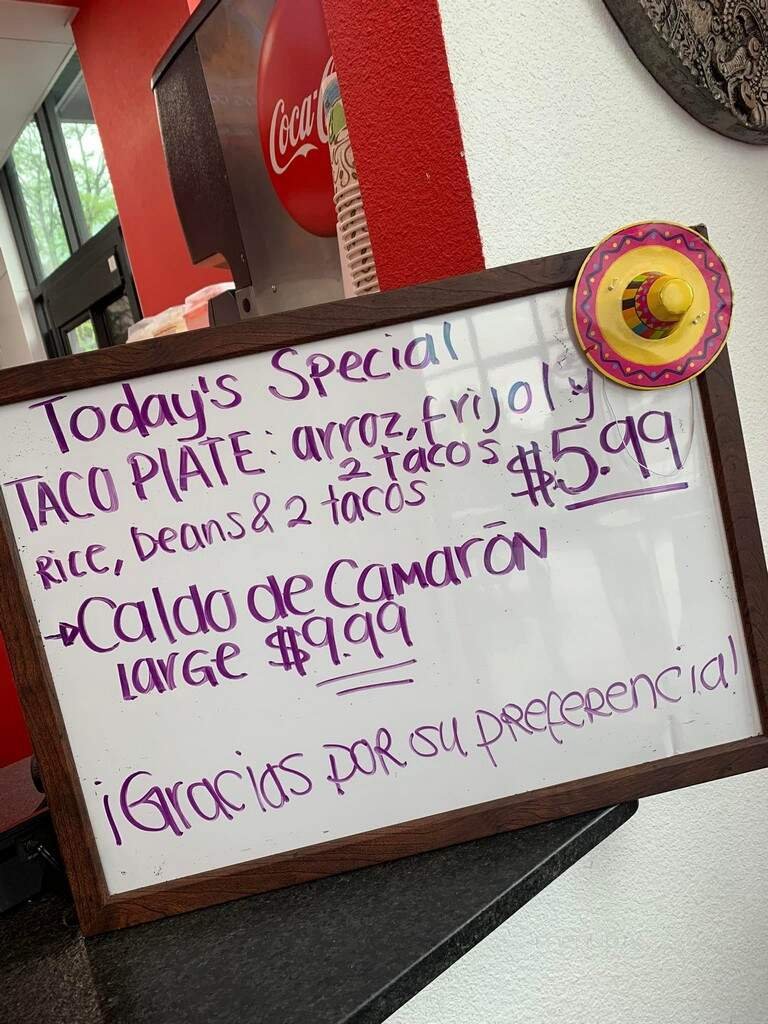 Coca-C
Today's Special
TACO PLATE: arroz, frijol y
2 tacos $5.99
Rice, beans & 2 tacos
Caldo de CAMARÓN
LARGE $9.99
¡Gracias POR su PREFERENCIA!